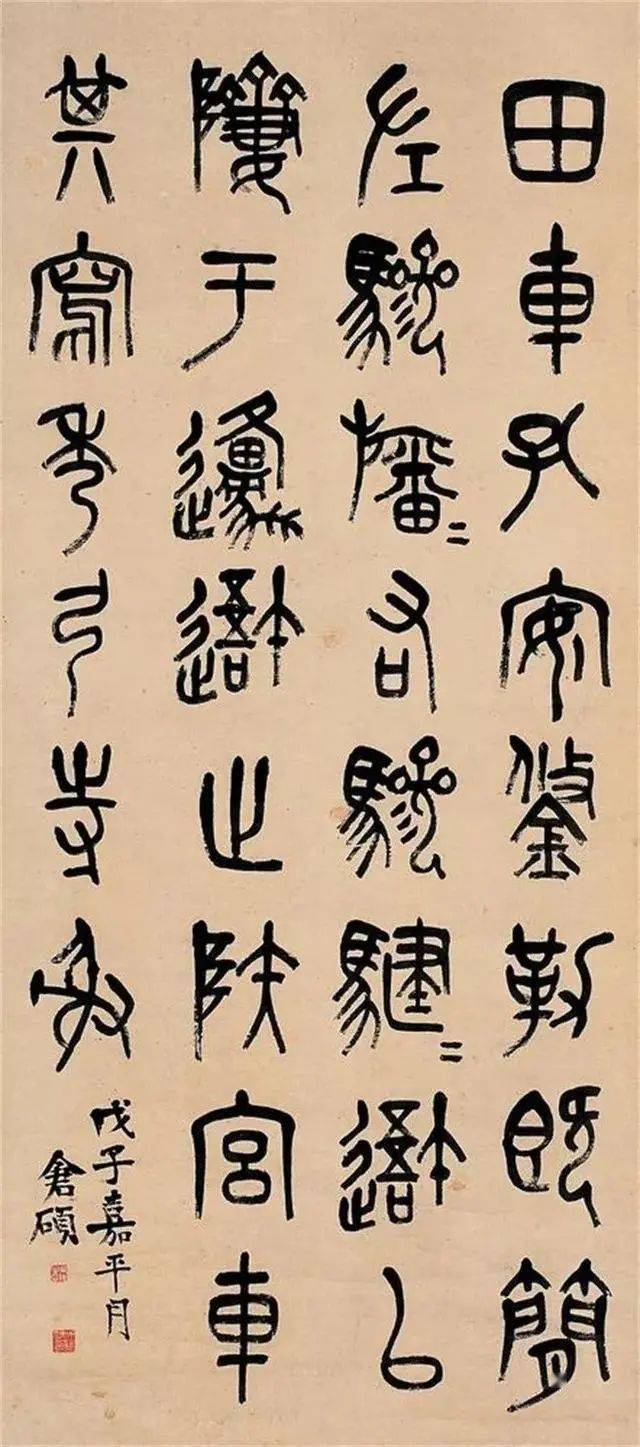 田車孔安鋚勒既簡
左驂旛=右驂騝=吾以
隮于邍吾止陕宮車
其寫秀弓寺射
戊子嘉平月
倉碩